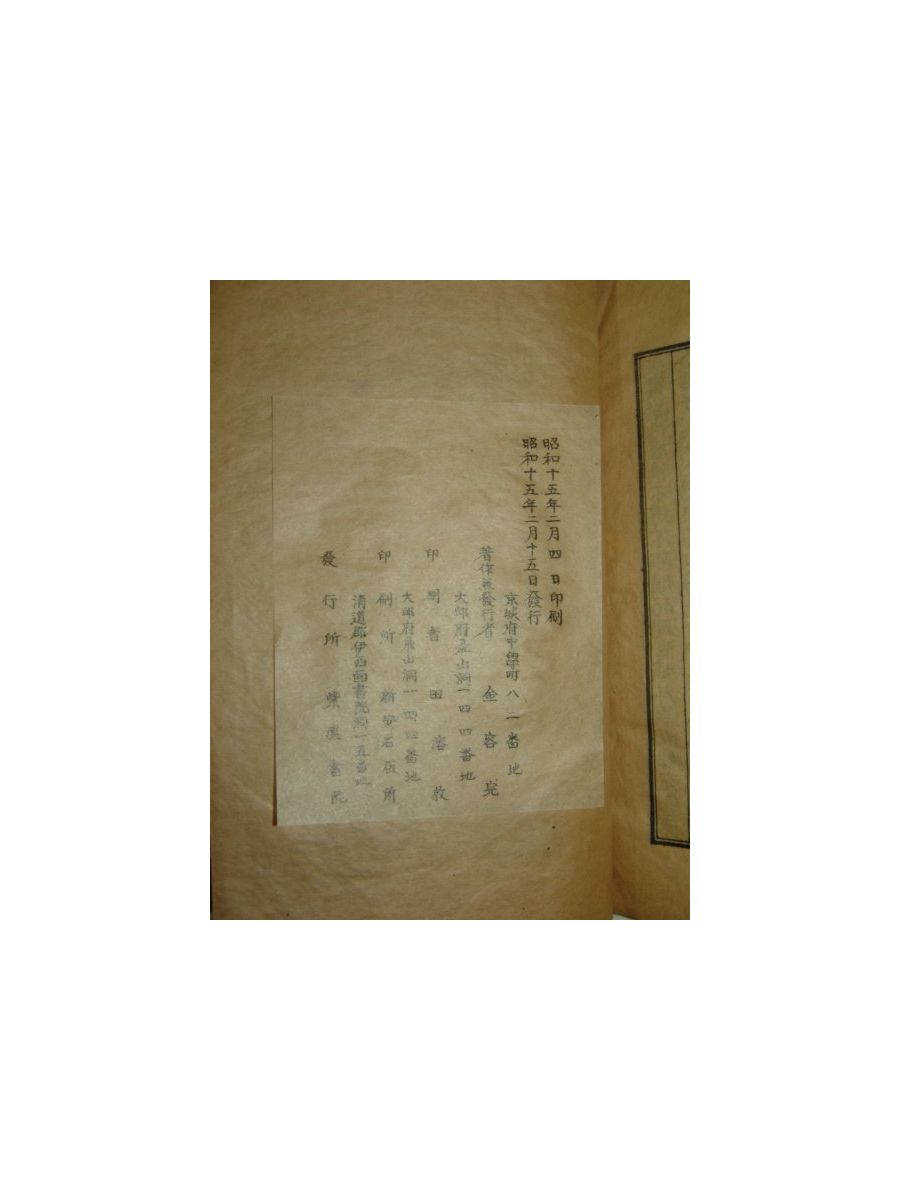 昭和十五年二月四日印刷
昭和十五年二月十五日發行
京城府中學町八二番地
著作兼發行者 金容完
大邱府 山洞一四四番地
印刷者 田溶
大邱府 山洞一四四番地
印刷所 新安石版所
淸道郡伊西面書院洞一五番地
發行所 紫溪書院